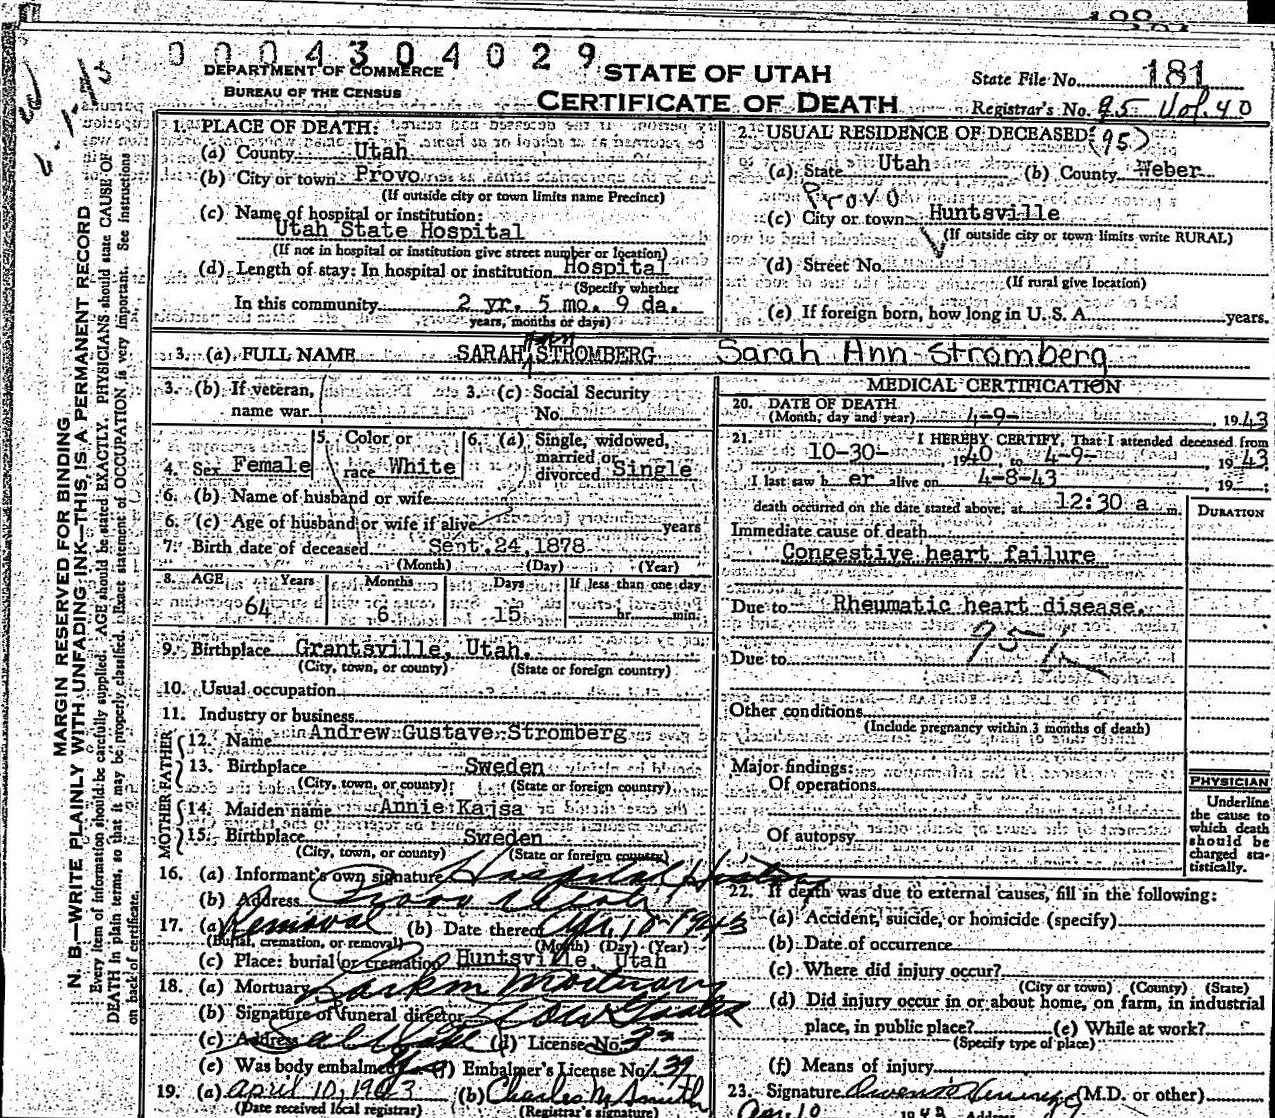 0 0 0 4 3 0 4 0 2 9
DEPARTMENT OF COMMERCE
BUREAU OF THE CENSUS
STATE OF UTAH
CERTIFICATE OF DEATH
State File No. 181
Registrar's No. 95 Vol. 40
MARGIN RESERVED FOR BINDING
N. B.—WRITE PLAINLY WITH UNFADING INK—THIS IS A PERMANENT RECORD
Every item of information should be carefully supplied. AGE should be stated EXACTLY. PHYSICIANS should state CAUSE OF
DEATH in plain terms, so that it may be properly classified. Exact statement of OCCUPATION is very important. See instructions
on back of certificate.
1. PLACE OF DEATH:
(a) County Utah
(b) City or town Provo
(If outside city or town limits name Precinct)
(c) Name of hospital or institution:
Utah State Hospital
(If not in hospital or institution give street number or location)
(d) Length of stay: In hospital or institution Hospital
(Specify whether
In this community 2 yr. 5 mo. 9 da.
years, months or days)
2. USUAL RESIDENCE OF DECEASED: (95)
(a) State Utah (b) County Weber
Provo
(c) City or town Huntsville
(If outside city or town limits write RURAL)
(d) Street No.
(If rural give location)
(e) If foreign born, how long in U. S. A. years.
3. (a) FULL NAME SARAH Ann STROMBERG Sarah Ann Stromberg
3. (b) If veteran, name war
3. (c) Social Security No.
4. Sex Female
5. Color or race White
6. (a) Single, widowed, married or divorced Single
6. (b) Name of husband or wife
6. (c) Age of husband or wife if alive years
7. Birth date of deceased Sept. 24, 1878
(Month) (Day) (Year)
8. AGE Years Months Days If less than one day
64 6 15 hr. min.
9. Birthplace Grantsville, Utah.
(City, town, or county) (State or foreign country)
10. Usual occupation
11. Industry or business
FATHER
12. Name Andrew Gustave Stromberg
13. Birthplace Sweden
(City, town, or county) (State or foreign country)
MOTHER
14. Maiden name Annie Kajsa
15. Birthplace Sweden
(City, town, or county) (State or foreign country)
16. (a) Informant's own signature Hospital History
(b) Address Provo Utah
17. (a) Removal (b) Date thereof
(Burial, cremation, or removal) (Month) (Day) (Year)
(c) Place: burial or cremation Huntsville, Utah
18. (a) Mortuary Larkin Mortuary
(b) Signature of funeral director
(c) Address Salt Lake (d) License No.
(e) Was body embalmed (f) Embalmer's License No. 139
19. (a) April 10, 1943 (b) Charles M Smith
(Date received local registrar) (Registrar's signature)
MEDICAL CERTIFICATION
20. DATE OF DEATH
(Month, day and year) 4-9- , 1943
21. I HEREBY CERTIFY, That I attended deceased from
10-30- , 1940, to 4-9- , 1943
I last saw her alive on 4-8-43 , 19 ;
death occurred on the date stated above, at 12:30 a m.
DURATION
Immediate cause of death
Congestive heart failure
Due to Rheumatic heart disease.
Due to
Other conditions
(Include pregnancy within 3 months of death)
Major findings:
Of operations
Of autopsy
PHYSICIAN
Underline
the cause to
which death
should be
charged sta-
tistically.
22. If death was due to external causes, fill in the following:
(a) Accident, suicide, or homicide (specify)
(b) Date of occurrence
(c) Where did injury occur?
(City or town) (County) (State)
(d) Did injury occur in or about home, on farm, in industrial
place, in public place? (e) While at work?
(Specify type of place)
(f) Means of injury
23. Signature (M.D. or other)